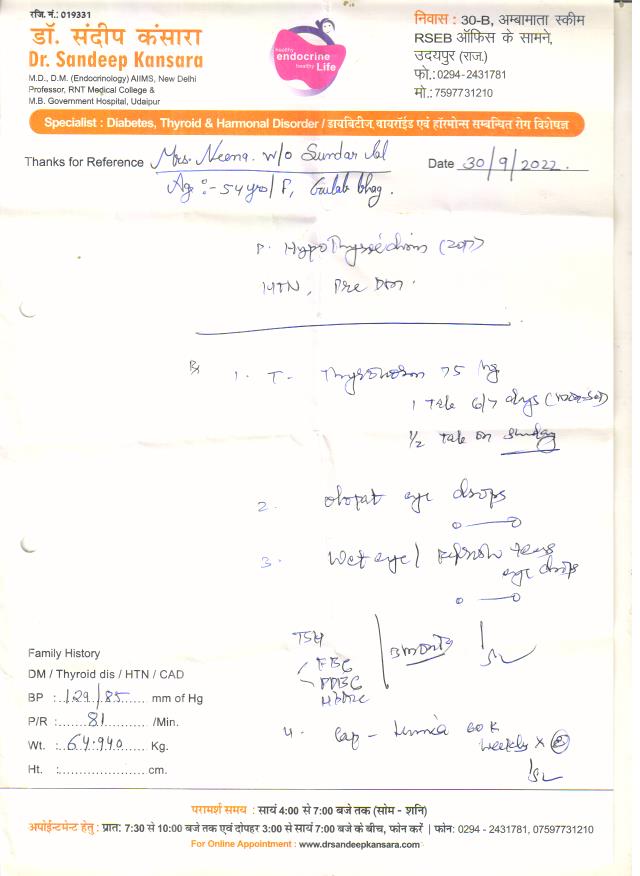 रजि. नं.: 019331
डॉ. संदीप कंसारा
Dr. Sandeep Kansara
M.D., D.M. (Endocrinology) AIIMS, New Delhi
Professor, RNT Medical College &
M.B. Government Hospital, Udaipur
healthy
endocrine
healthy Life
निवास : 30-B, अम्बामाता स्कीम
RSEB ऑफिस के सामने,
उदयपुर (राज.)
फो.:0294-2431781
मो.:7597731210
Specialist : Diabetes, Thyroid & Harmonal Disorder / डायबिटीज थायरॉईड एवं हॉरमोन्स सम्बन्धित रोग विशेषज्ञ
Thanks for Reference Mrs. Neena. w/o Sundar lal Date 30/9/2022.
Ag :- 54 yrs/F, Gulab bhag.
P. Hypothyroidism (2017)
HTN, Pre DM.
Rx
1. T- 75 mg
1 tab 6/7 days
1/2 tab on Sunday
2. olopat eye drops
3. Wet eye / Refresh tears
eye drops
TSH
FBG
PPBG
HbA1c
3 months
4. Cap - 60 K
weekly x 8
Family History
DM / Thyroid dis / HTN / CAD
BP :.129/85 mm of Hg
P/R :.81 /Min.
Wt. :.64.940 Kg.
Ht. : cm.
परामर्श समय : सायं 4:00 से 7:00 बजे तक (सोम - शनि)
अपोईन्टमेन्ट हेतु : प्रात: 7:30 से 10:00 बजे तक एवं दोपहर 3:00 से सायं 7:00 बजे के बीच, फोन करें | फोन: 0294 - 2431781, 07597731210
For Online Appointment : www.drsandeepkansara.com